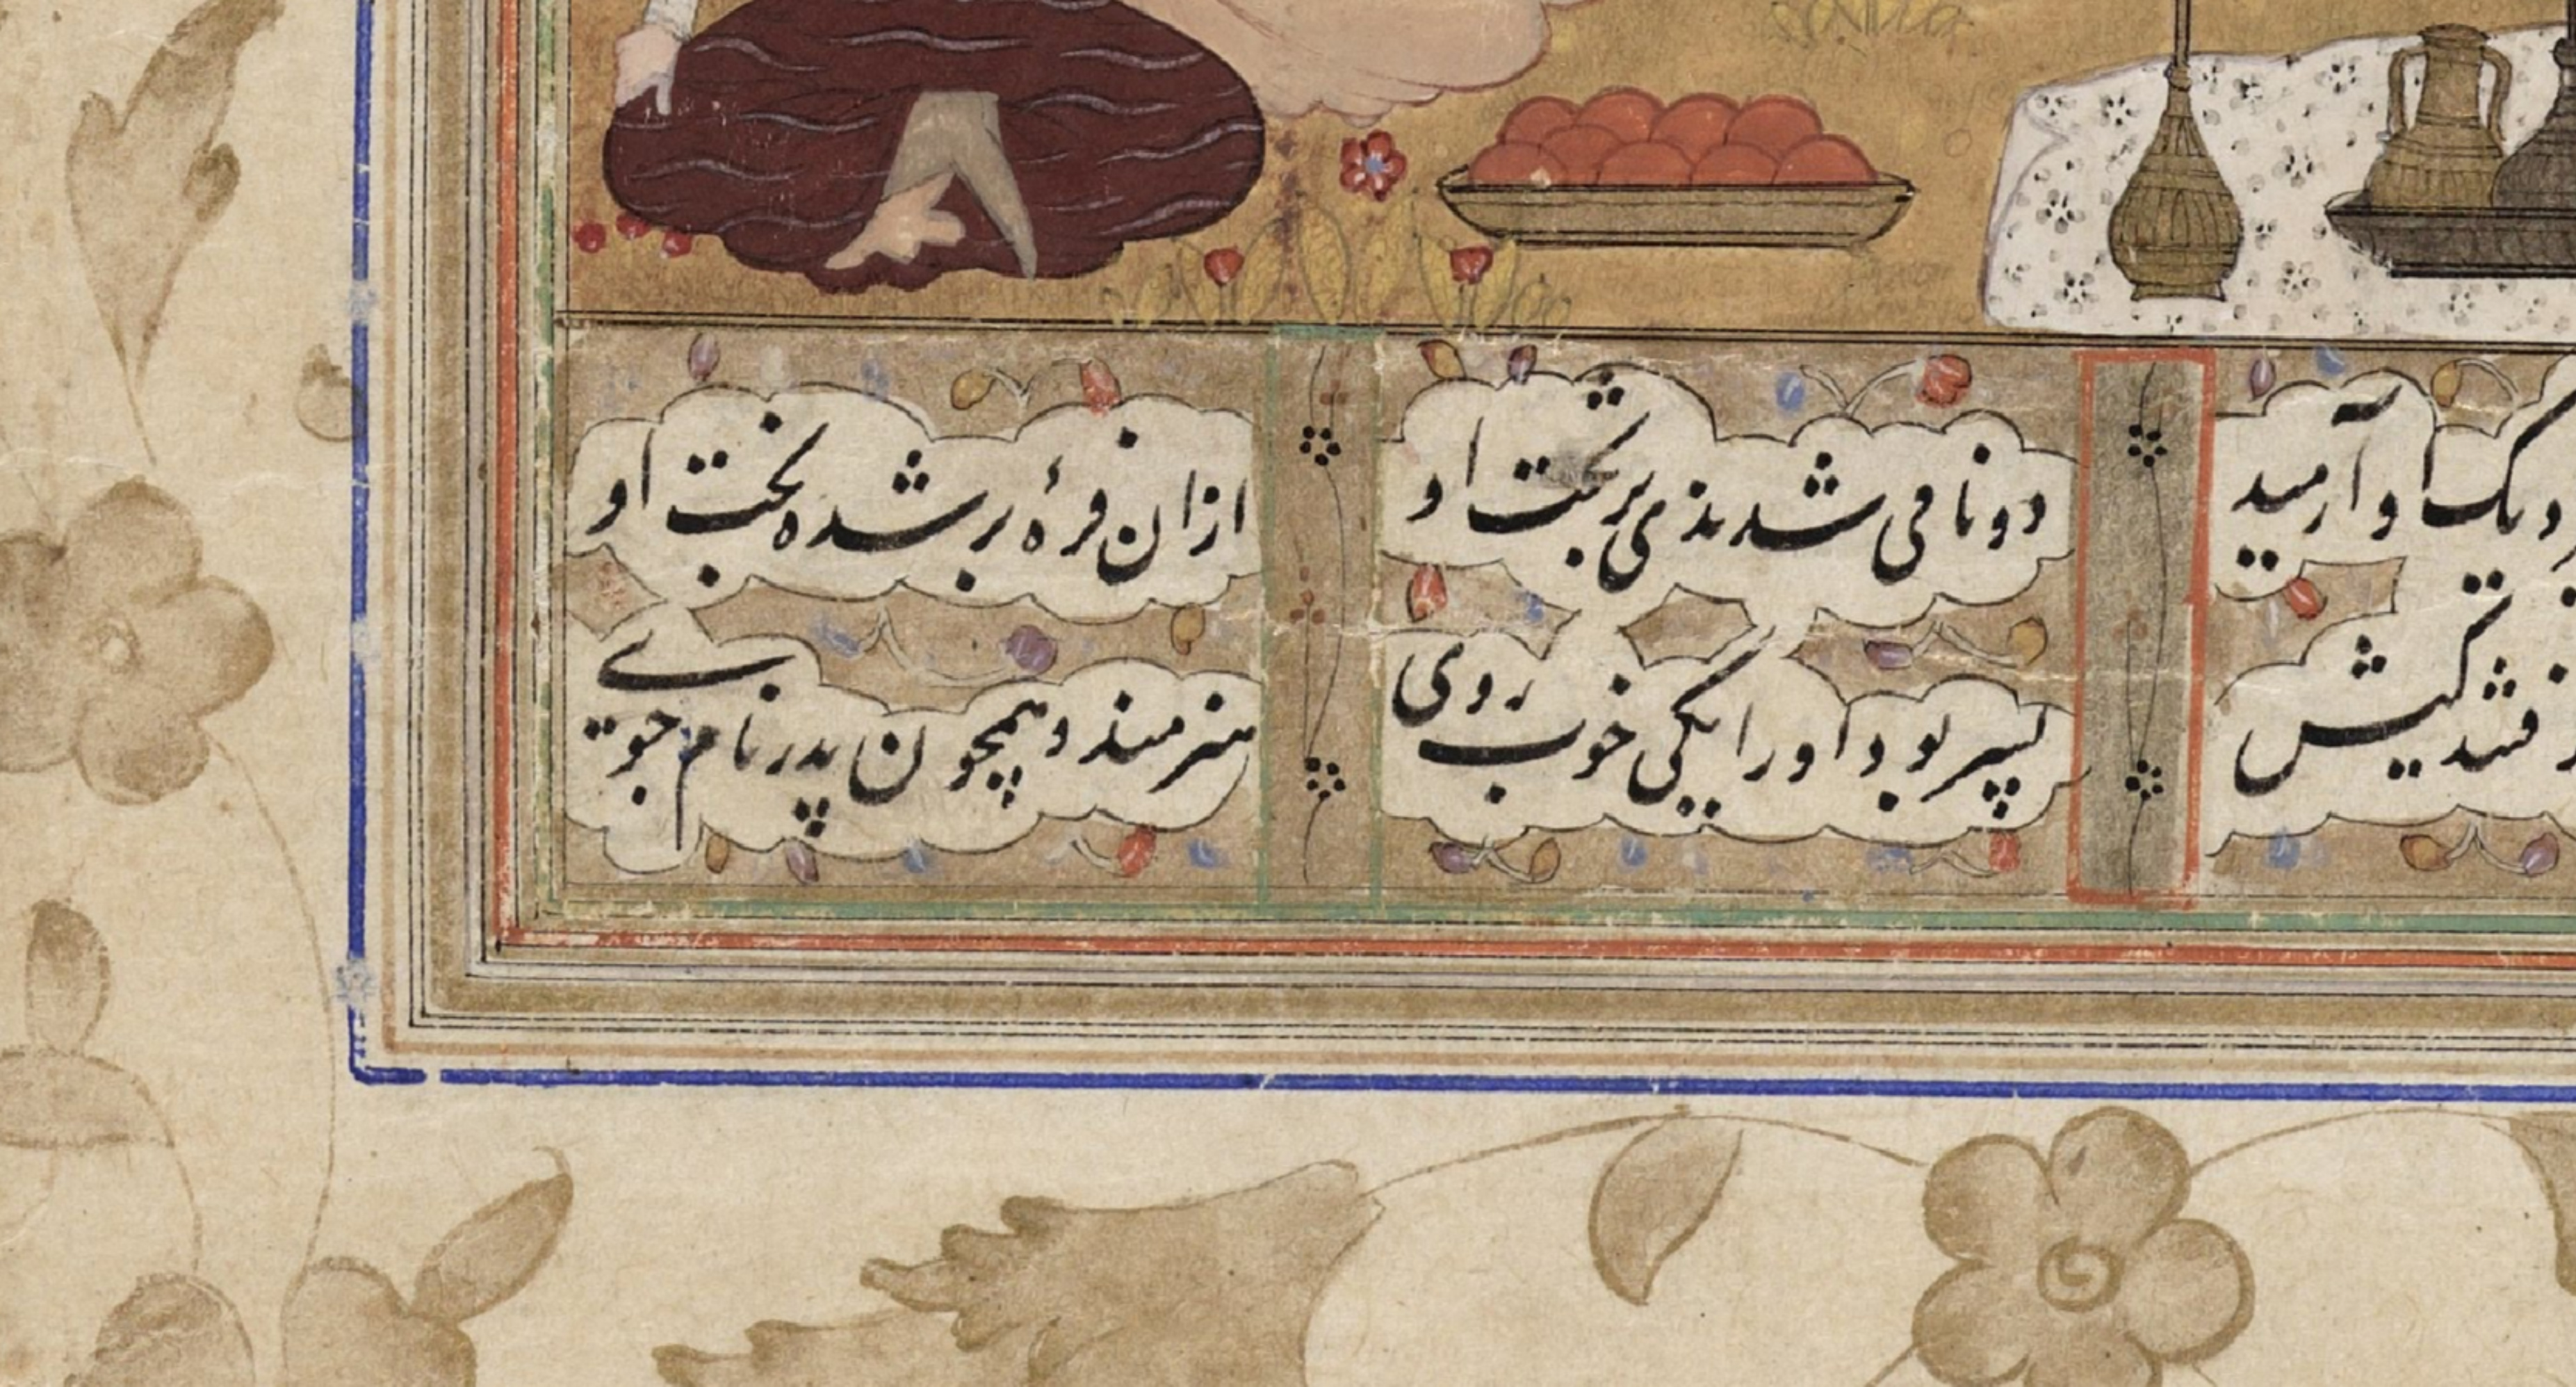 دیک او آرمید
دوتا می شدندی بر تخت او
ازان فرهٔ بر شده بخت او
ز کیش
پسر بود او را یکی خوب روی
هنرمند و همچون پدر نام جوی